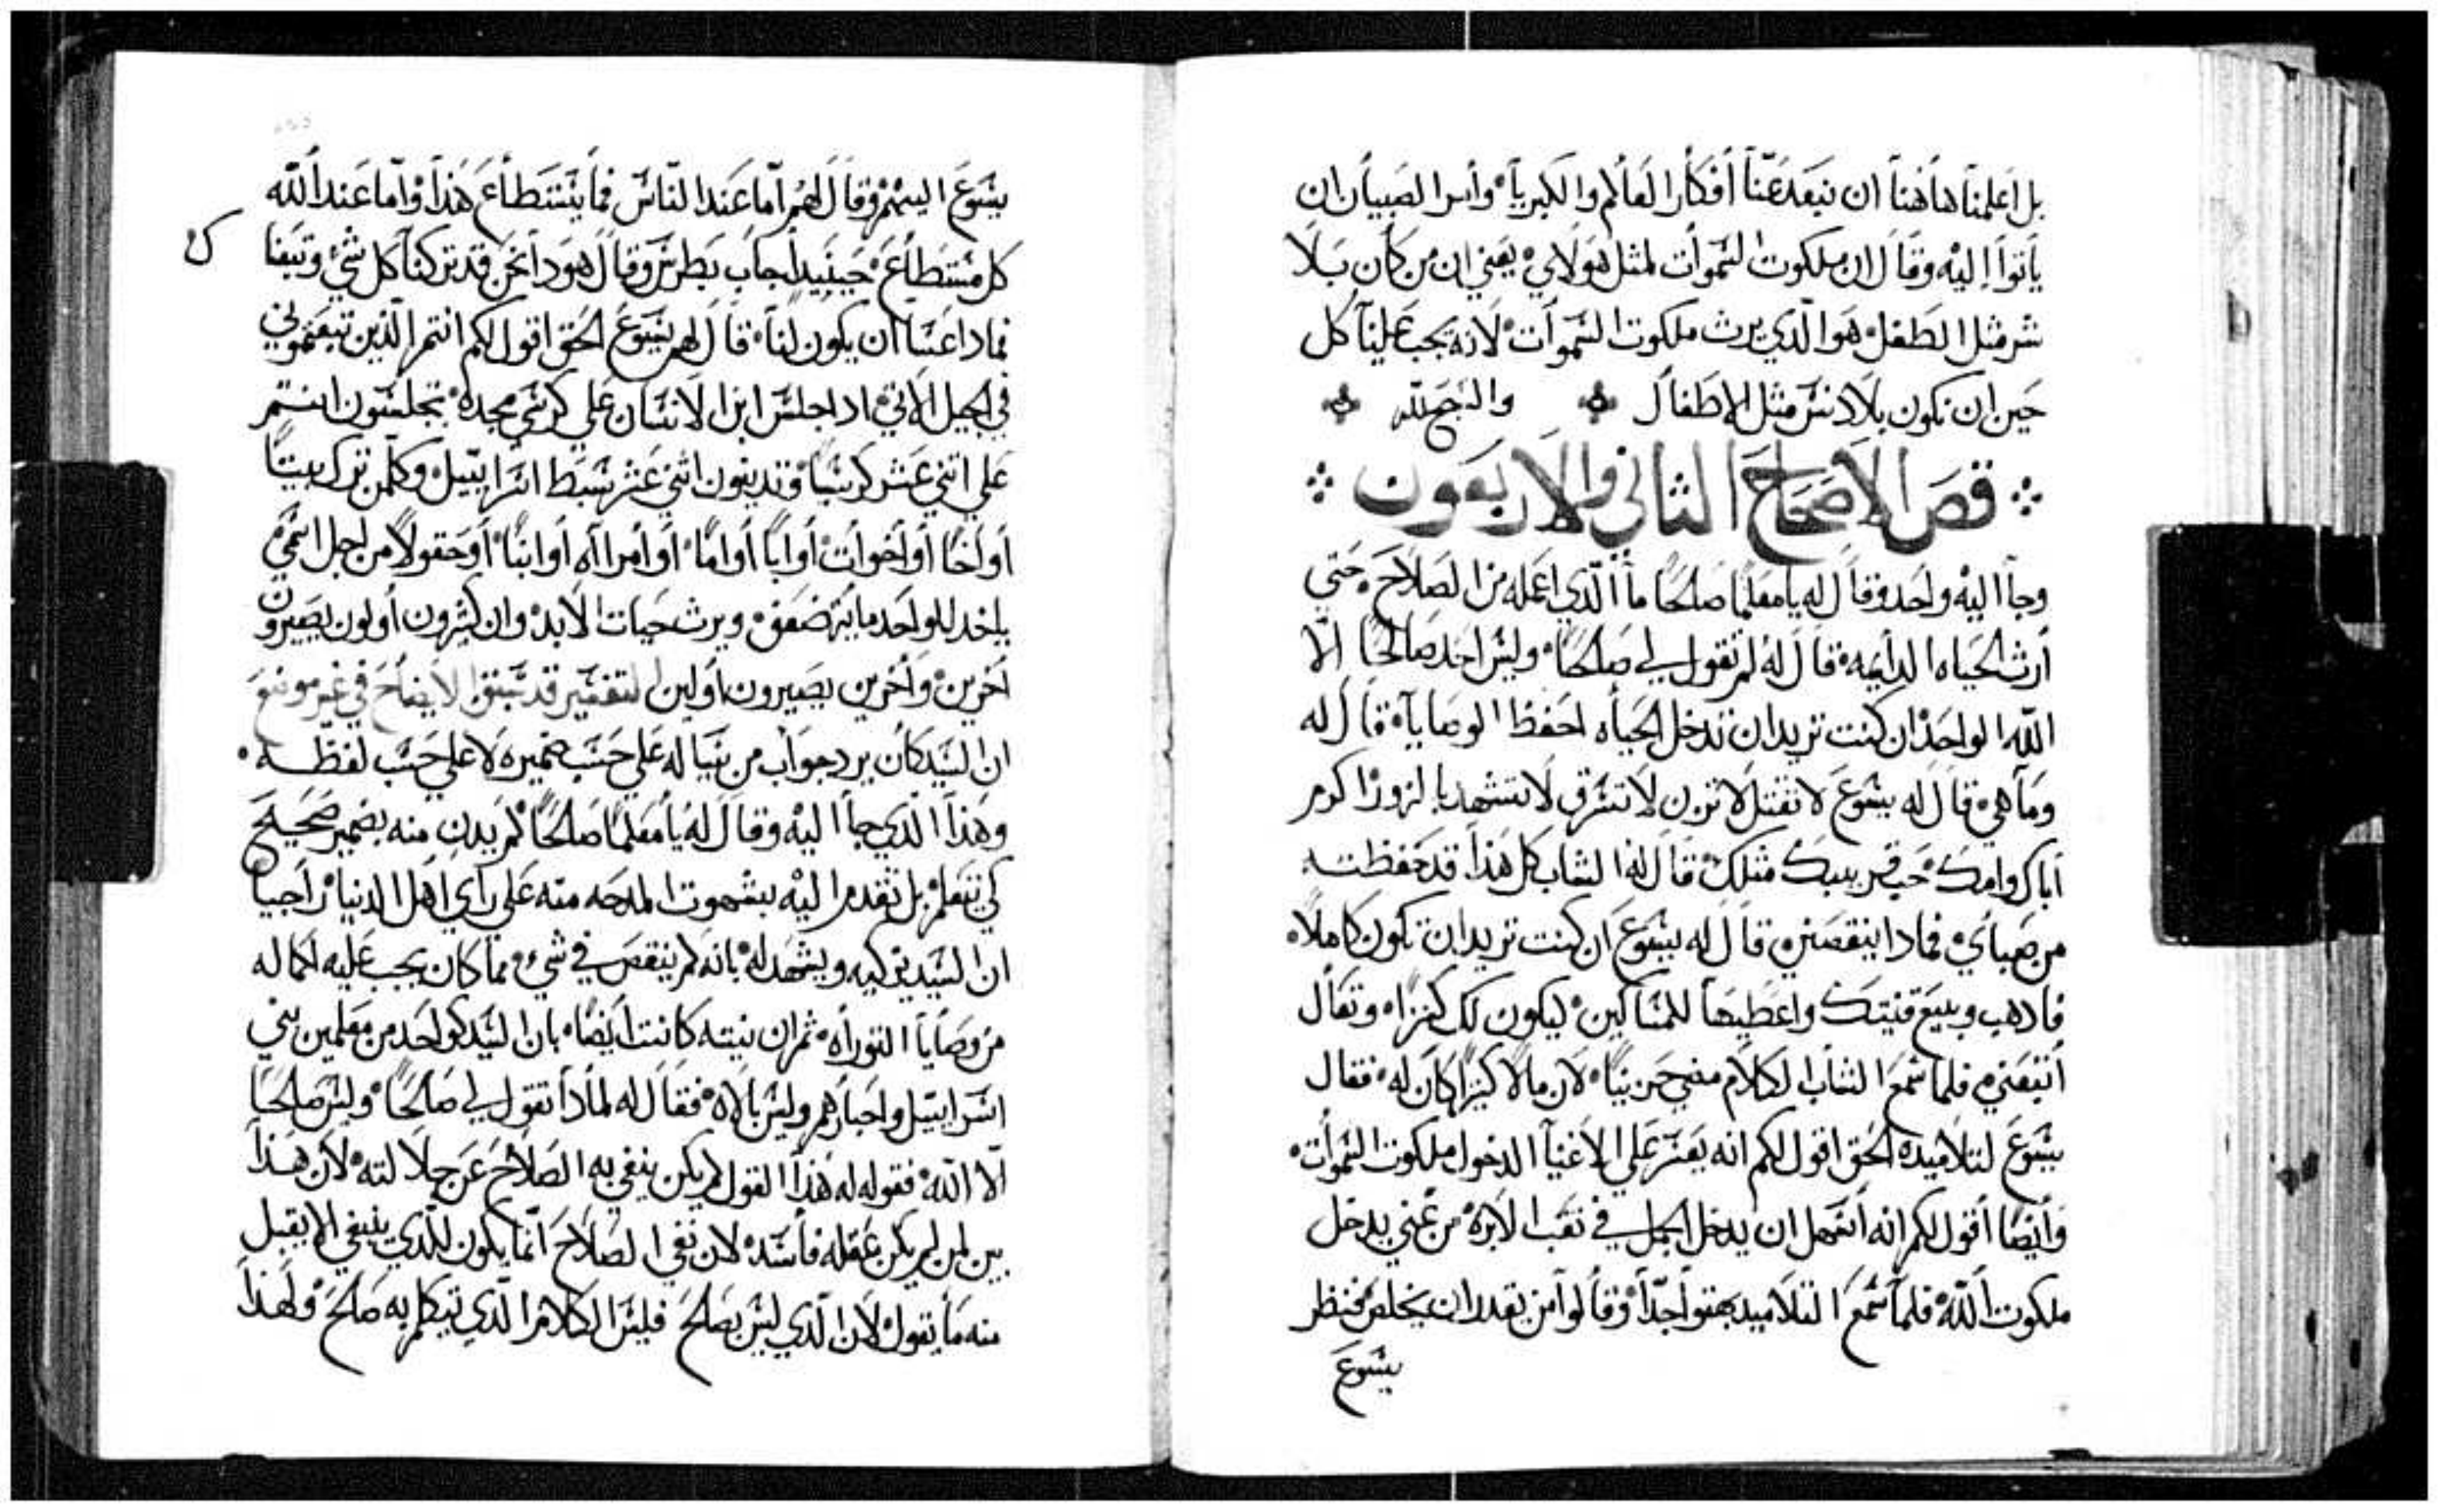 بل اعلمنا هاهنا ان نبعد عنّا أفكار العالم والكبرياء وأمر الصبيان ان
ياتوا إليه وقال ان ملكوت السموات لمثل هولاي يعني ان من كان بلا
شر مثل الطفل هو الّذي يرث ملكوت السموات لانه يجب علينا كل
حين ان نكون بلا دنس مثل الاطفال والمجد لله
قص الاصحاح الثاني والاربعون
وجا اليه واحد وقال له يا معلمًا صالحًا ما الّذي اعمله من الصلاح حتي
أرث الحياه الدايمه قال له لم تقول لي صالحًا وليس احد صالحًا الّا
اللّه الواحد ان كنت تريد ان تدخل الحياه احفظ الوصايا قال له
وما هي قال له يسوع لا تقتل لا تزن لا تسرق لا تشهد بالزور اكرم
أباك وامك حب قريبك مثلك قال له الشاب كل هذا قد حفظته
من صباي فمادا ينقصني قال له يسوع ان كنت تريد ان تكون كاملًا
فادهب وبيع قنيتك واعطيها للمساكين ليكون لك كنزًا وتعال
أتبعني فلما سمع الشاب الكلام مضي حزينًا لان مالًا كثيرًا كان له فقال
يسوع لتلاميده الحق اقول لكم انه يعسر علي الاغنيا الدخول ملكوت السموات
وأيضًا أقول لكم انه أسهل ان يدخل الجمل في نقب الابره من غني يدخل
ملكوت اللّه فلما سمع التلاميد بهتوا جدّا وقالوا من يقدر ان يخلص فنظر
يسوع
يسوع اليهم وقال لهم امّا عند النّاس فما يستطاع هذا وامّا عند اللّه
كل مستطاع حينيد أجاب بطرس وقال هودا نحن قد تركنا كل شي وتبعنا
ك
فمادا عسا ان يكون لنا قال لهم يسوع الحق اقول لكم انتم الّذين تبعتموني
في الجيل الاتي اد اجلس ابن الانسان علي كرسي مجده تجلسون انتم
علي اتني عشر كرسيًا وتدينون اتني عشر سبط اسراييل وكلّمن ترك بيتًا
أو أخًا أو أخوات أو أبًا أو امًا أو أمراه أو ابنًا أو حقولًا من اجل اسمي
ياخد للواحد مايه ضعف ويرث حيات الابد وان كثيرون أولون يصيرون
أخرين وأخرين يصيرون أولين التفسير قد سبق الايضاح في غير موضع
ان السيد كان يرد جواب من يسا له علي حسب ضميره لا علي حسب لفظه
وهذا الّذي جا اليه وقال له يا معلمًا صالحًا لم يدن منه بضمير صحيح
كي يتعلم بل تقدم اليه بشهوت المدحه منه علي راي اهل الدنيا راجيا
ان السيد يزكيه ويشهد له بانه لم ينقص في شي مما كان يجب عليه اكماله
من وصايا التوراه ثم ان نيته كانت أيضًا بان السيد كواحد من معلمين بني
اسراييل واحبارهم وليس بالاه فقال له لمادا تقول لي صالحًا وليس صالحًا
الّا اللّه فقوله له هذا القول لم يكن ينفي به الصلاح عن جلالته لان هذا
بين لمن لم يكن عقله فاسد لان نفي الصلاح انّما يكون للّذي ينبغي الا يقبل
منه ما يقول لان الّذي ليس بصالح فليس الكلام الّذي يتكلم به صالح ولهذا